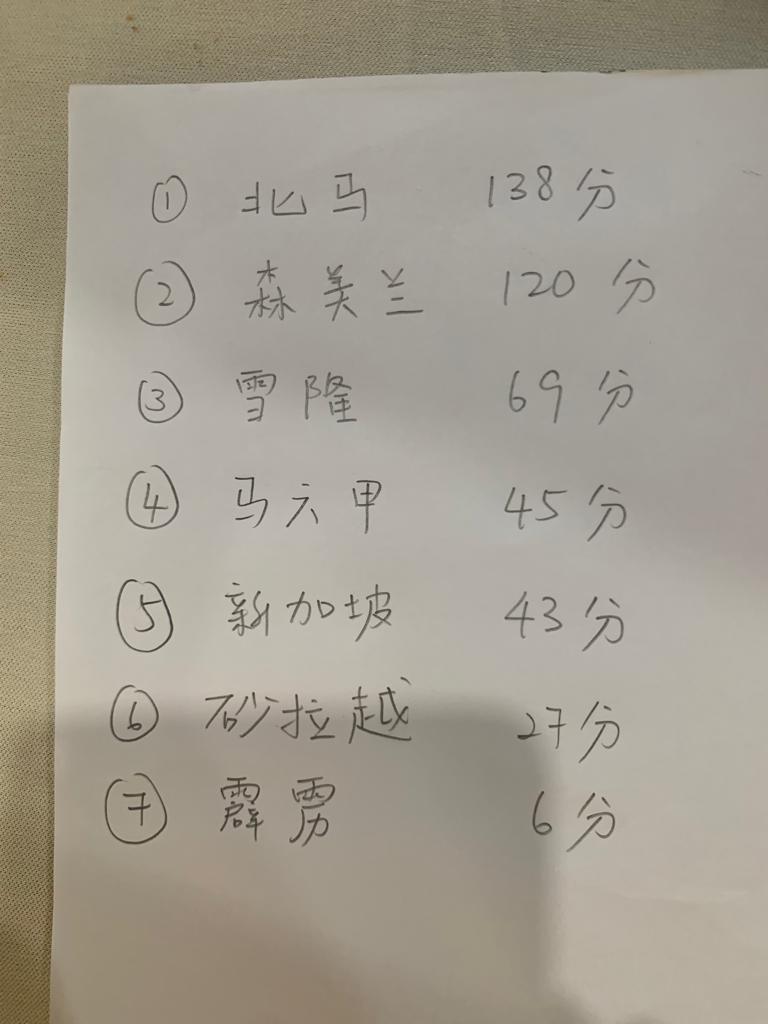 ① 北马 138分
② 森美兰 120分
③ 雪隆 69分
④ 马六甲 45分
⑤ 新加坡 43分
⑥ 砂拉越 27分
⑦ 霹雳 6分